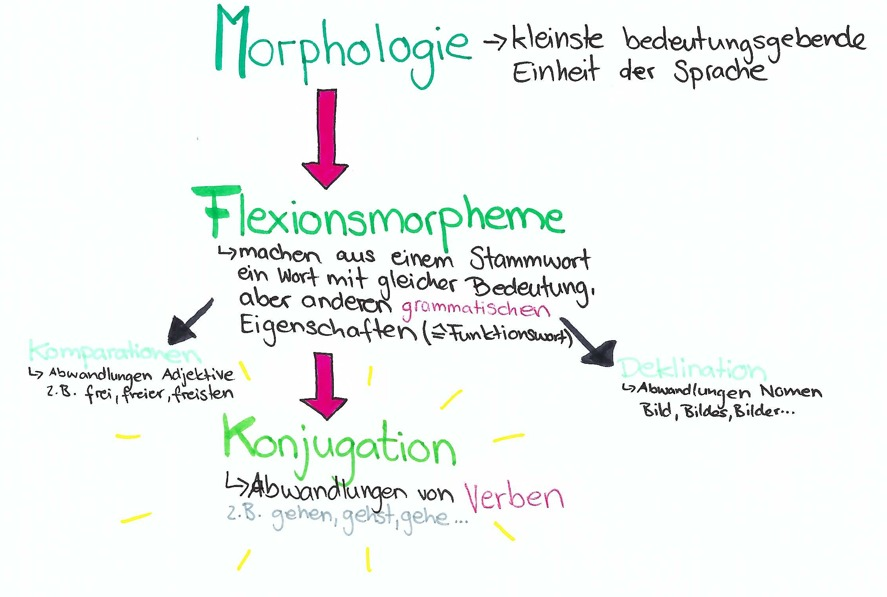 Morphologie
→ kleinste bedeutungsgebende
Einheit der Sprache
Flexionsmorpheme
↳ machen aus einem Stammwort
ein Wort mit gleicher Bedeutung,
aber anderen grammatischen
Eigenschaften (≙ Funktionswort)
Komparationen
↳ Abwandlungen Adjektive
z.B. frei, freier, freisten
Deklination
↳ Abwandlungen Nomen
Bild, Bildes, Bilder...
Konjugation
↳ Abwandlungen von Verben
z.B. gehen, gehst, gehe ...